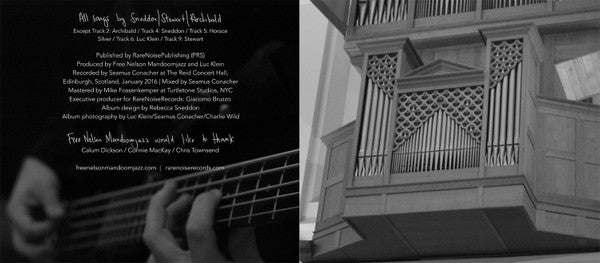 All songs by Sneddon/Stewart/Archibald
Except Track 2: Archibald / Track 4: Sneddon / Track 5: Horace
Silver / Track 6: Luc Klein / Track 9: Stewart
Published by RareNoisePublishing (PRS)
Produced by Free Nelson Mandoomjazz and Luc Klein
Recorded by Seamus Conacher at The Reid Concert Hall,
Edinburgh, Scotland, January 2016 | Mixed by Seamus Conacher
Mastered by Mike Fossenkemper at Turtletone Studios, NYC
Executive producer for RareNoiseRecords: Giacomo Bruzzo
Album design by Rebecca Sneddon
Album photography by Luc Klein/Seamus Conacher/Charlie Wild
Free Nelson Mandoomjazz would like to thank
Calum Dickson / Connie MacKay / Chris Townsend
freenelsonmandoomjazz.com | rarenoiserecords.com